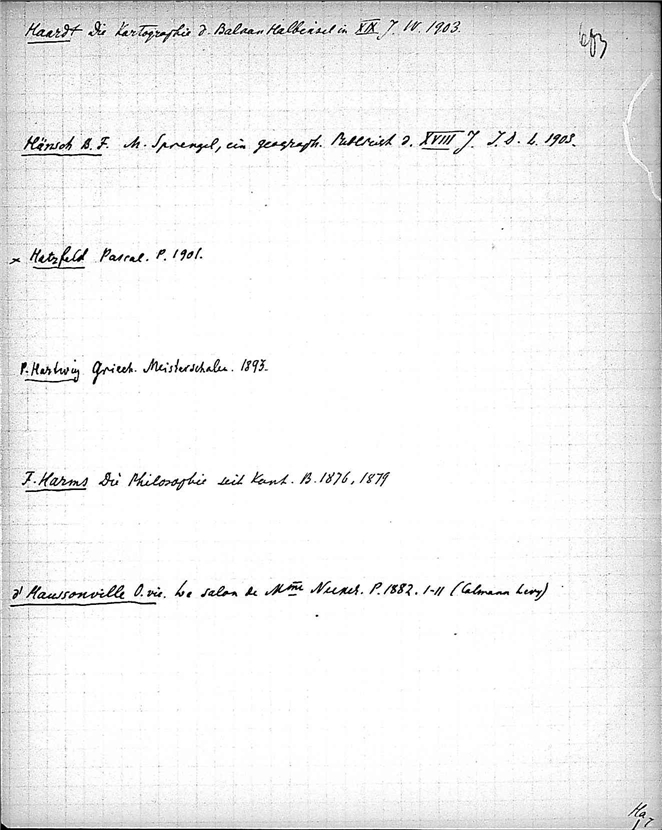 Haardt Die Kartographie d. Balkan Halbinsel in XIX J. W. 1903.
Hänsch B. F. M. Sprengel, ein geograph. Publicist d. XVIII J. J. D. L. 1903.
x Hatzfeld Pascal. P. 1901.
P. Hartwig Griech. Meisterschalen. 1893.
F. Harms Die Philosophie seit Kant. B. 1876, 1879
d'Haussonville O. vic. Le salon de Mme Necker. P. 1882. I-II (Calmann Levy)
Ha